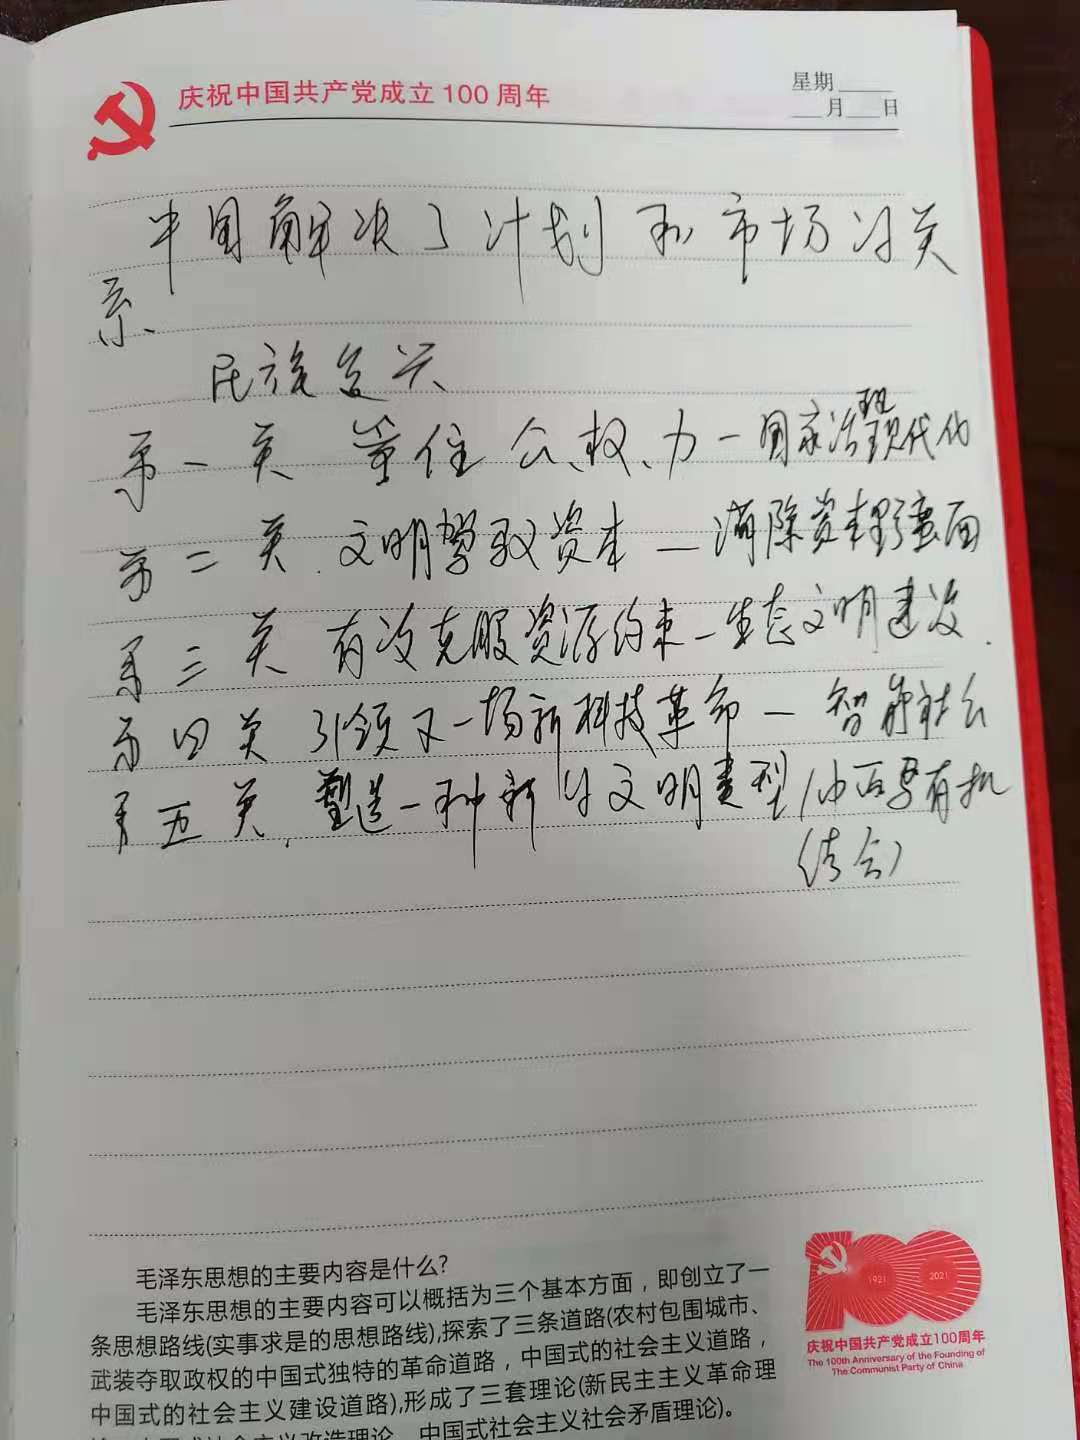 庆祝中国共产党成立100周年
星期
月 日
中国解决了计划和市场的关
系、
民族复兴
第一关 管住公、权、力—国家治理现代化
第二关.文明驾驭资本—消除资本野蛮面
第三关 有效克服资源约束—生态文明建设.
第四关 引领又一场新科技革命—智能社会
第五关.塑造一种新的文明类型(中西要有机
结合)
毛泽东思想的主要内容是什么?
毛泽东思想的主要内容可以概括为三个基本方面，即创立了一
条思想路线(实事求是的思想路线),探索了三条道路(农村包围城市、
武装夺取政权的中国式独特的革命道路，中国式的社会主义道路，
中国式的社会主义建设道路),形成了三套理论(新民主主义革命理
论，中国式社会主义改造理论，中国式社会主义社会矛盾理论)。
1921 2021
庆祝中国共产党成立100周年
The 100th Anniversary of the Founding of
The Communist Party of China